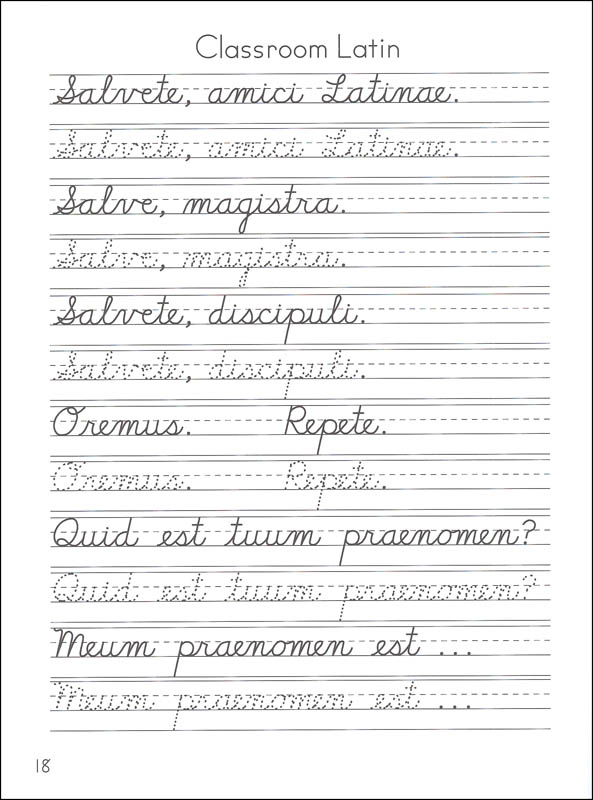 Classroom Latin
Salvete, amici Latinae.
Salvete, amici Latinae.
Salve, magistra.
Salve, magistra.
Salvete, discipuli.
Salvete, discipuli.
Oremus. Repete.
Oremus. Repete.
Quid est tuum praenomen?
Quid est tuum praenomen?
Meum praenomen est ...
Meum praenomen est ...
18